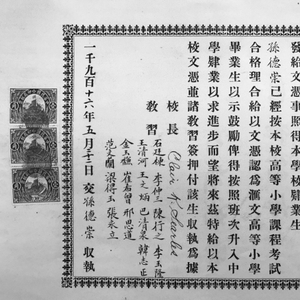 發給文憑事照得本學校肄業生
孫德崇已經按本校高等小學課程考試
合格理合給以文憑認為滙文高等小學
畢業生以示鼓勵俾得按照班次升入中
學肄業以求進步而望將來茲特給以本
校文憑並諸教習簽押付該生收執為據
校長 Clair K. Searles
教習 石廷棟 李仲三 陳行之 李玉隆
王清河 王之炳 巴清泉 韓志正
金玉聰 崔右曾 邢思道
梁得玉 張永立
一千九百十六年五月 日 交孫德崇 收執